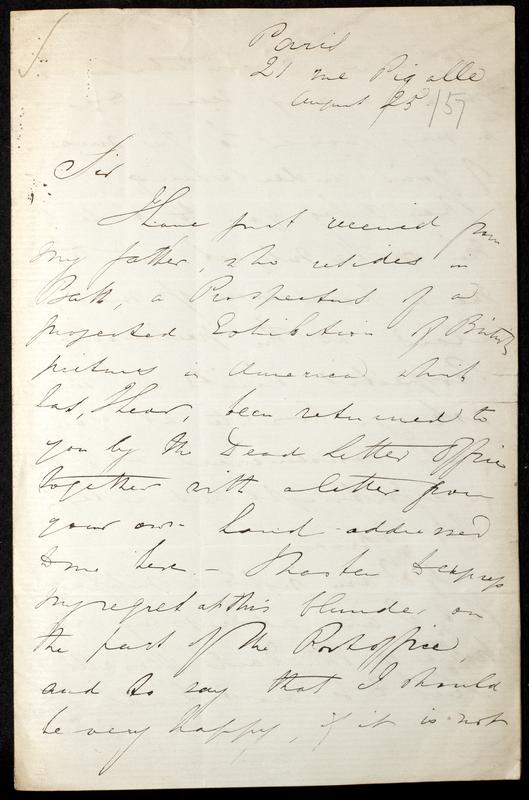 Paris
21 rue Pigalle
August 25/57
Sir
I have just received from
my father, who resides in
Bath, a Prospectus of a
projected Exhibition of British
pictures in America which
has, I hear, been returned to
you by the Dead Letter Office
together with a letter from
your own hand addressed
to me here – I hasten to express
my regret at this blunder on
the part of the Post office,
and to say that I should
be very happy, if it is not